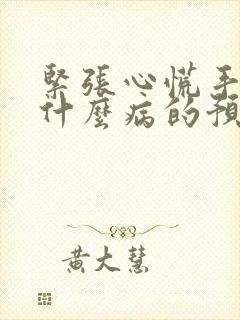 緊張心慌手
什麼病的預
黃大慧